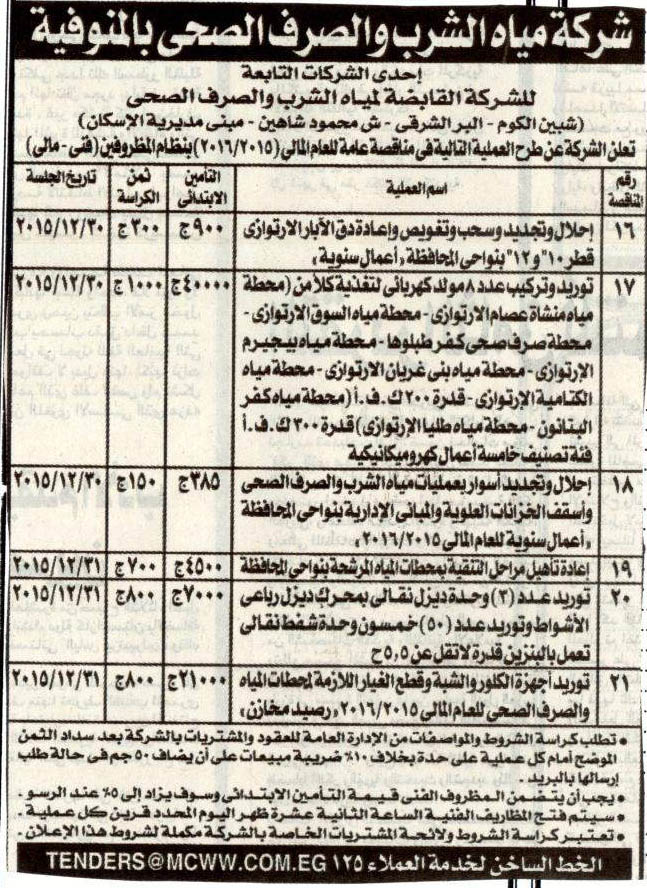 شركة مياه الشرب والصرف الصحى بالمنوفية
إحدى الشركات التابعة
للشركة القابضة لمياه الشرب والصرف الصحى
(شبين الكوم - البر الشرقى - ش محمود شاهين - مبنى مديرية الإسكان)
تعلن الشركة عن طرح العملية التالية فى مناقصة عامة للعام المالى (٢٠١٦/٢٠١٥) بنظام المظروفين (فنى - مالى)
رقم المناقصة اسم العملية التأمين الابتدائى ثمن الكراسة تاريخ الجلسة
١٦ إحلال وتجديد وسحب وتغويص وإعادة دق الآبار الارتوازى ٩٠٠ج ٣٠٠ج ٢٠١٥/١٢/٣٠
قطر ١٠" و١٢" بنواحى المحافظة «أعمال سنوية»
١٧ توريد وتركيب عدد ٨ مولد كهربائى لتغذية كلا من (محطة ٤٠٠٠٠ج ١٠٠٠ج ٢٠١٥/١٢/٣٠
مياه منشاة عصام الارتوازى - محطة مياه السوق الارتوازى -
محطة صرف صحى كفر طبلوها - محطة مياه بيجيرم
الإرتوازى - محطة مياه بنى غريان الارتوازى - محطة مياه
الكتامية الإرتوازى - قدرة ٢٠٠ ك.ف.أ (محطة مياه كفر
البتانون - محطة مياه طليا الإرتوازى) قدرة ٣٠٠ ك.ف.أ
فئة تصنيف خامسة أعمال كهروميكانيكية
١٨ إحلال وتجديد أسوار بعمليات مياه الشرب والصرف الصحى ٣٨٥ج ١٥٠ج ٢٠١٥/١٢/٣٠
وأسقف الخزانات العلوية والمبانى الإدارية بنواحى المحافظة
«أعمال سنوية للعام المالى ٢٠١٦/٢٠١٥»
١٩ إعادة تأهيل مراحل التنقية بمحطات المياه المرشحة بنواحى المحافظة ٤٥٠٠ج ٧٠٠ج ٢٠١٥/١٢/٣١
٢٠ توريد عدد (٣) وحدة ديزل نقالى بمحرك ديزل رباعى ٧٠٠٠ج ٨٠٠ج ٢٠١٥/١٢/٣١
الأشواط وتوريد عدد (٥٠) خمسون وحدة شفط نقالى
تعمل بالبنزين قدرة لا تقل عن ٥,٥ح
٢١ توريد أجهزة الكلور والشبة وقطع الغيار اللازمة لمحطات المياه ٢١٠٠٠ج ٨٠٠ج ٢٠١٥/١٢/٣١
والصرف الصحى للعام المالى ٢٠١٦/٢٠١٥ «رصيد مخازن»
• تطلب كراسة الشروط والمواصفات من الإدارة العامة للعقود والمشتريات بالشركة بعد سداد الثمن
الموضح أمام كل عملية على حدة بخلاف ١٠٪ ضريبة مبيعات على أن يضاف ٥٠ جم فى حالة طلب
إرسالها بالبريد.
• يجب أن يتضمن المظروف الفنى قيمة التأمين الابتدائى وسوف يزاد إلى ٥٪ عند الرسو.
• سيتم فتح المظاريف الفنية الساعة الثانية عشرة ظهر اليوم المحدد قرين كل عملية.
• تعتبر كراسة الشروط ولائحة المشتريات الخاصة بالشركة مكملة لشروط هذا الإعلان.
الخط الساخن لخدمة العملاء ١٢٥ TENDERS@MCWW.COM.EG